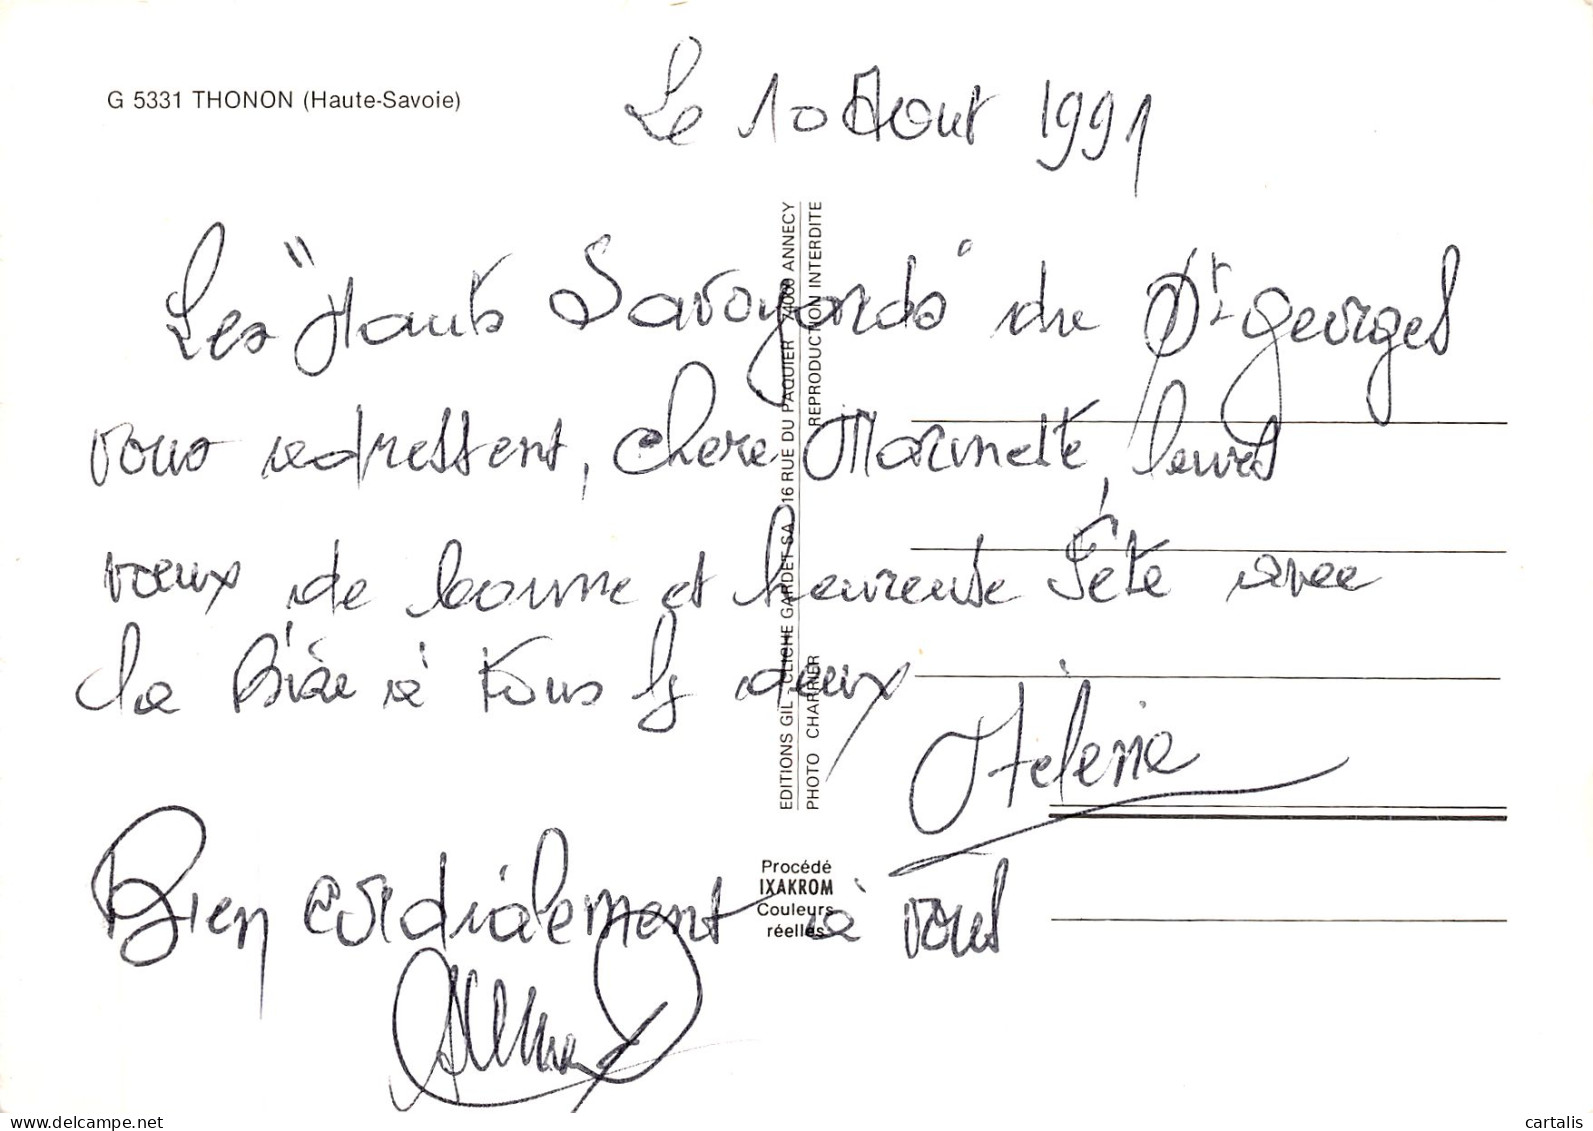 G 5331 THONON (Haute-Savoie)
Le 10 Aout 1991
Les "Hauts Savoyards" du Dr Georges
vous adressent, chere Marinette, leurs
vœux de bonne et heureuse Fête avec
la Bise à tous les deux
Hélène
Bien cordialement à vous
EDITIONS GIL - CLICHE GARDET SA 16 RUE DU PAQUIER 74000 ANNECY
PHOTO CHARRIER REPRODUCTION INTERDITE
Procédé
IXAKROM
Couleurs
réelles
www.delcampe.net
cartalis